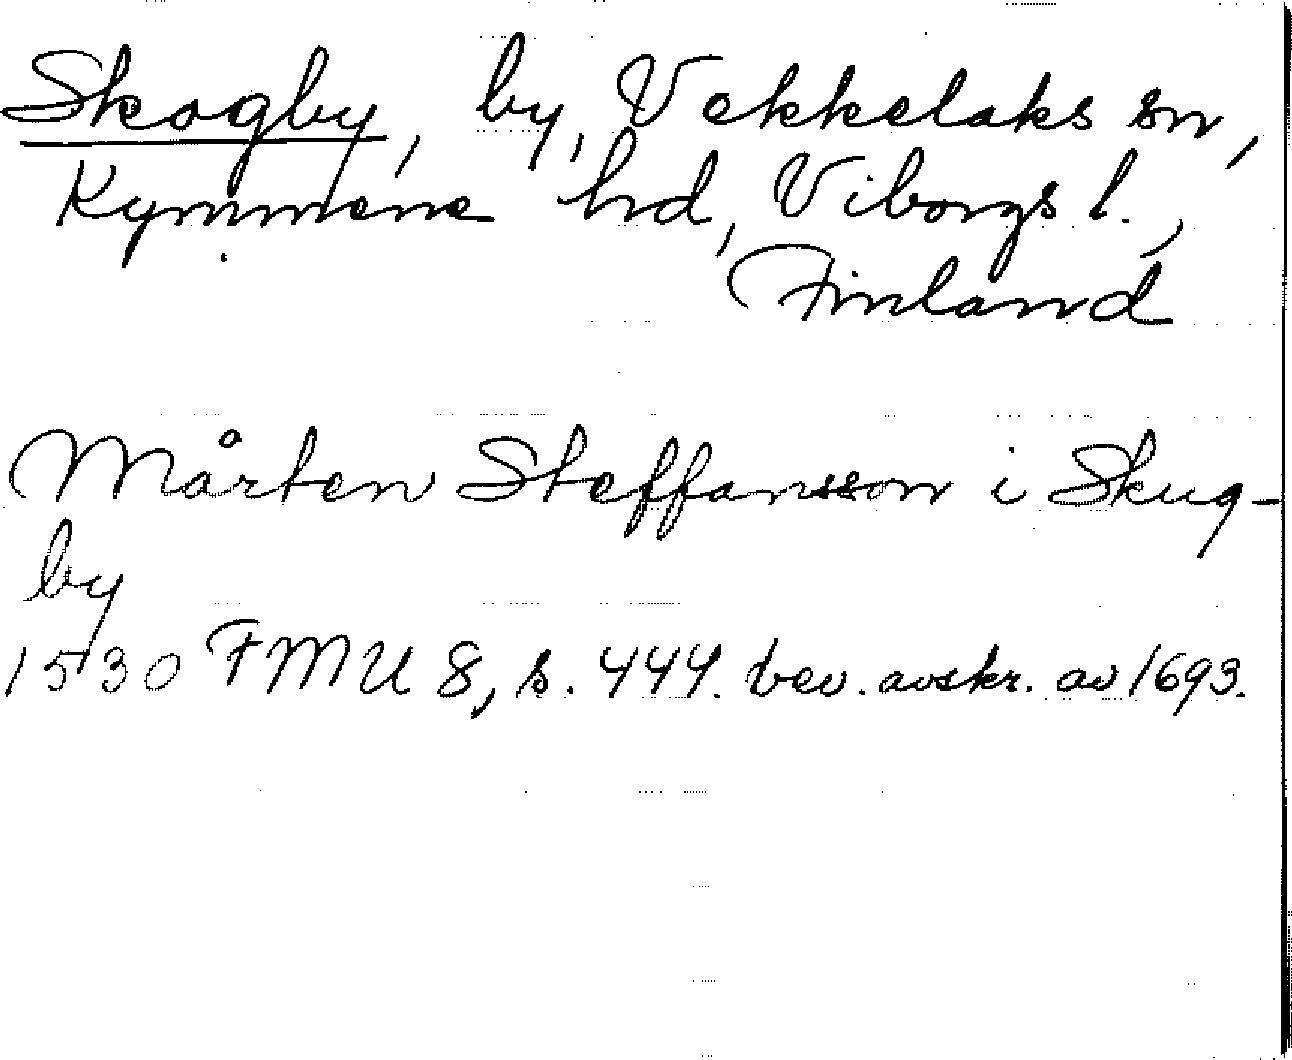 Skogby, by, Vekkelaks sn,
Kymmene hd, Viborgs l.,
Finland
Mårten Steffansson i Skug-
by
1530 FMU 8, s. 444. bev. avskr. av 1693.